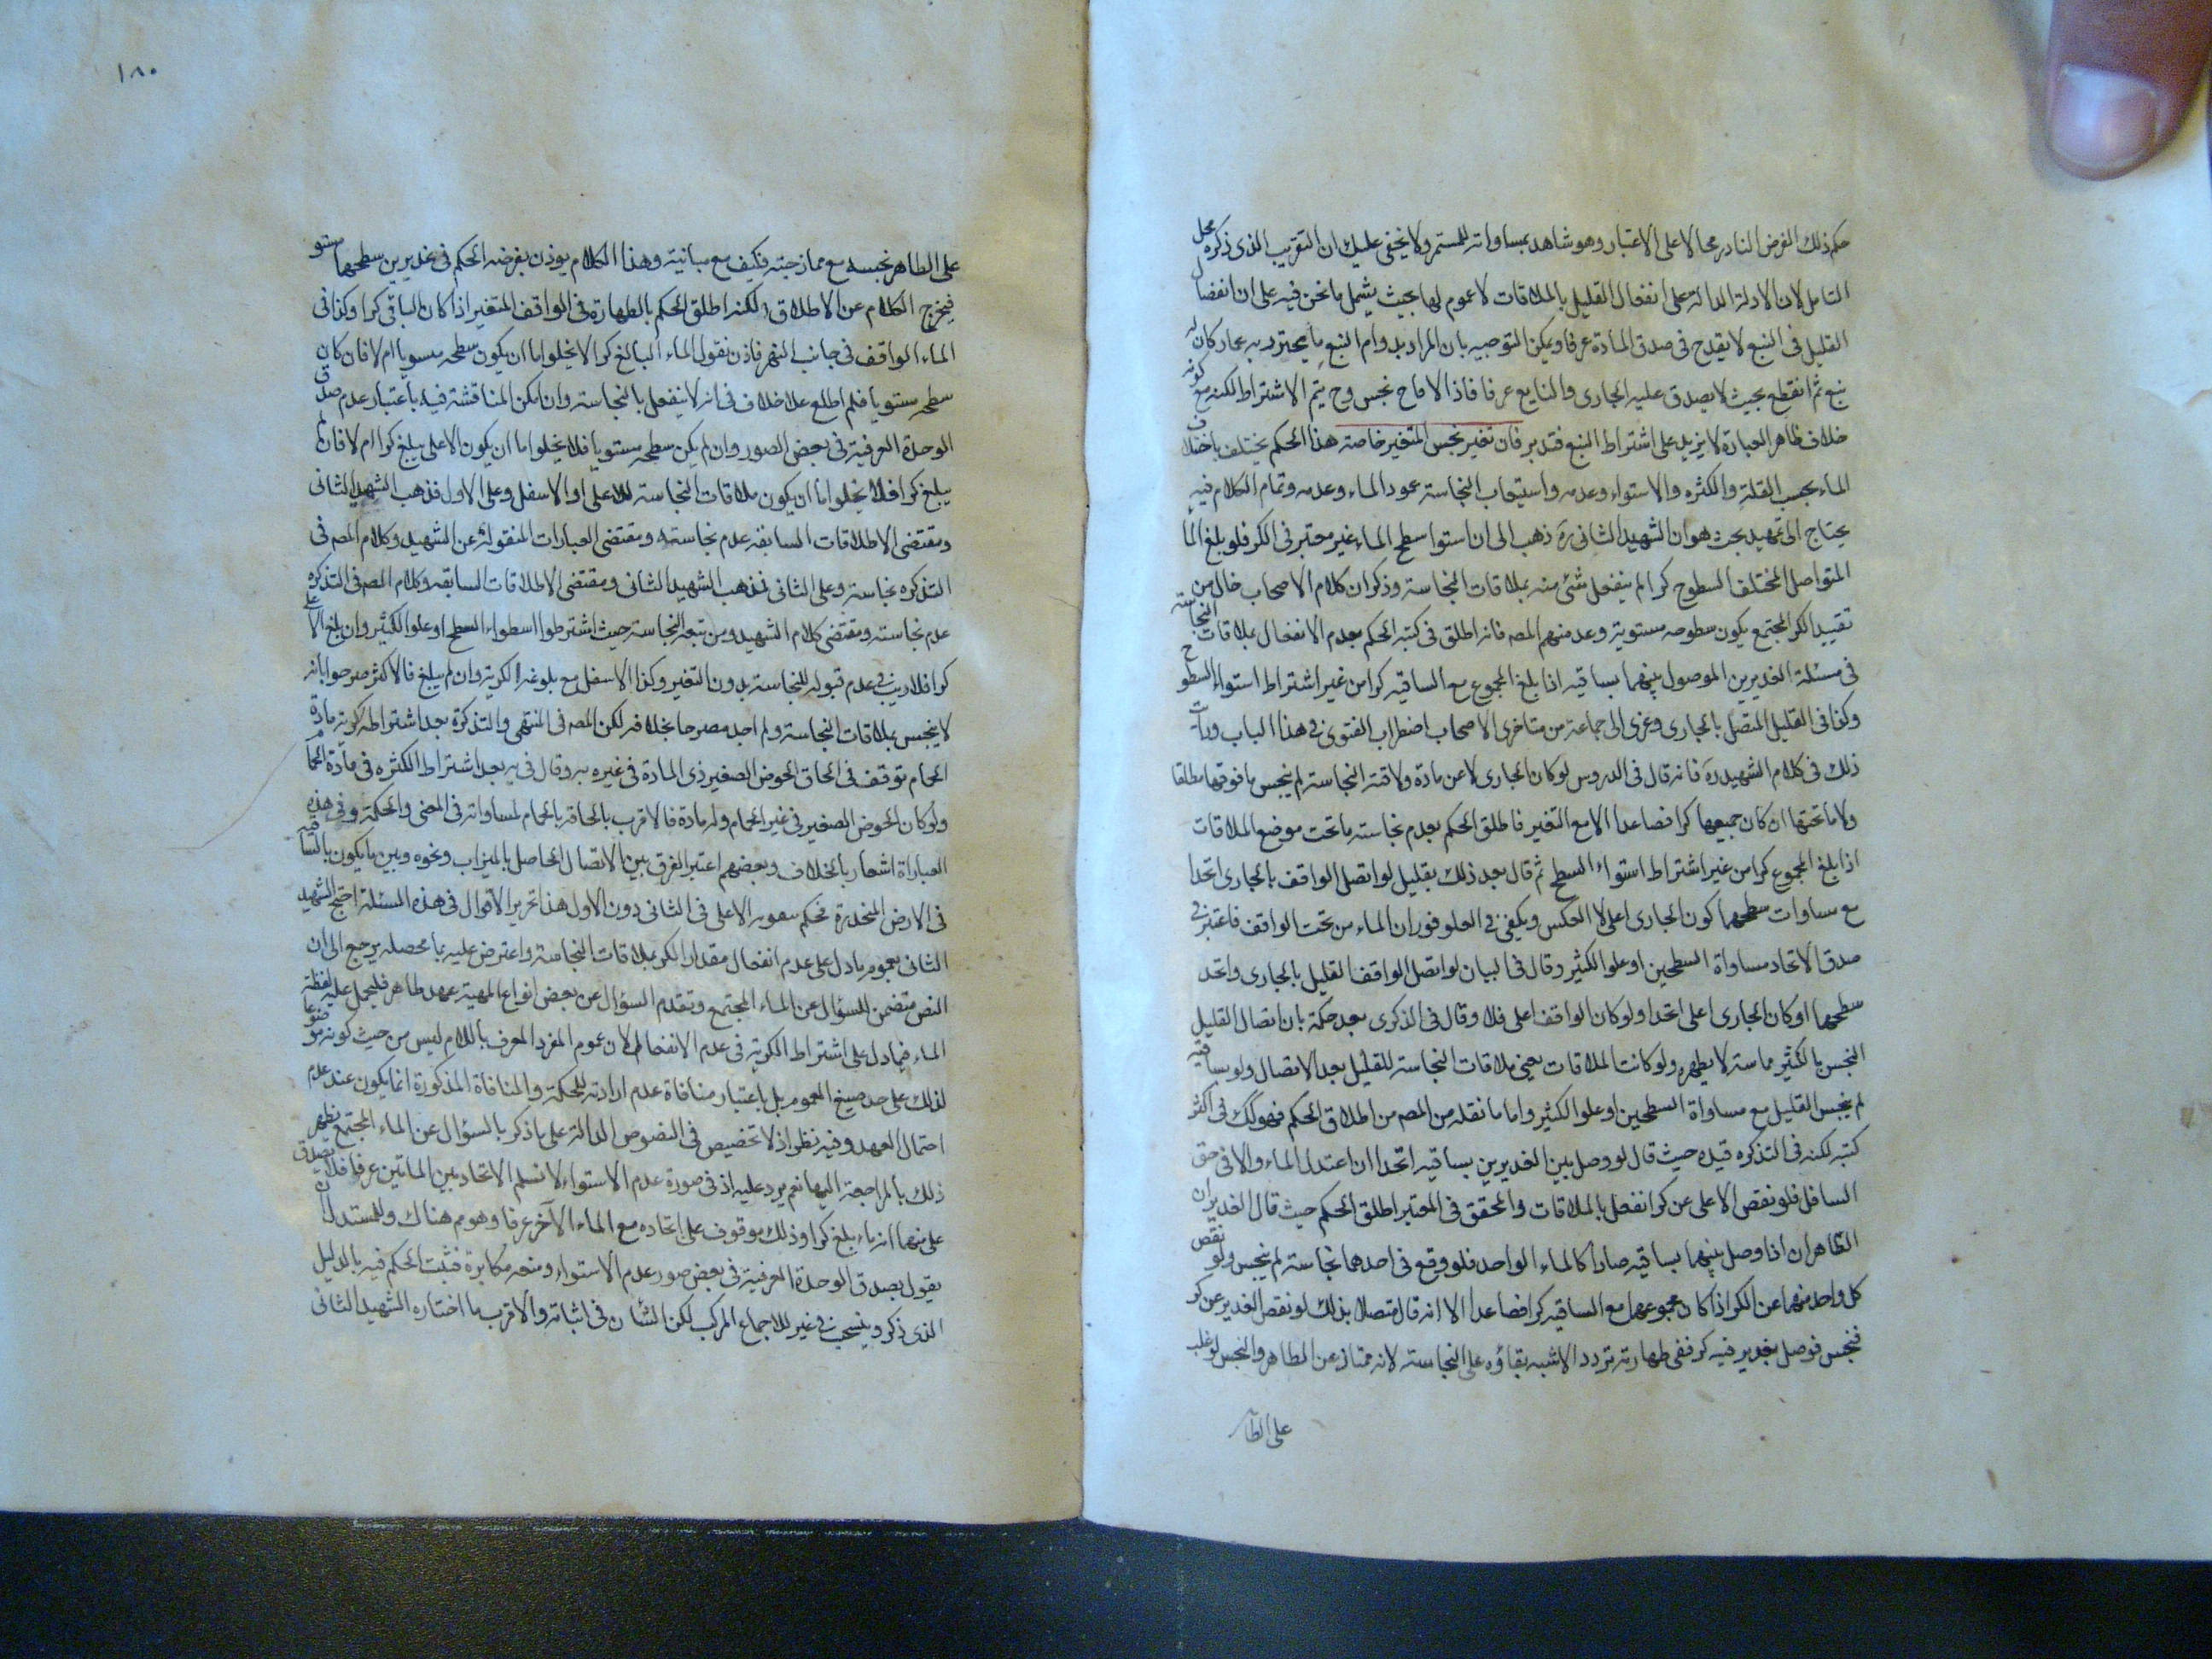 حكم ذلك الفرض النادر محالا على الاعتبار وهو شاهد بمساواته للمستمر ولا يخفى عليك ان التقريب الذى ذكره محل
التامل لان الادلة الدالة على انفعال القليل بالملاقات لا عموم لها بحيث يشمل ما نحن فيه على ان انفصال
القليل فى النبع لا يقدح فى صدق المادة عرفا ويمكن التوجيه بان المراد بدوام النبع ما يحترز به عما ركان له
نبع ثم انقطع بحيث لا يصدق عليه الجارى والنابع عرفا فاذا لاقاح نجس وح يتم الاشتراط لكنه مع كونه
خلاف ظاهر العبارة لا يزيد على اشتراط المنبع فتدبر فان تغير نجس المتغير خاصته هذا الحكم يختلف باختلاف
الماء بحسب القلة والكثره والاستواء وعدمه واستيعاب النجاسة عمود الماء وعدمه وتمام الكلام فيه
يحتاج الى تمهيد بحث هو ان الشهيد الثانى ره ذهب الى ان استوا سطح الماء غير معتبر فى الكر فلو بلغ الما
المتواصل المختلف السطوح كرا لم ينفعل شئ منه بملاقات النجاسة وذكر ان كلام الاصحاب خال من
تقييد الكر المجتمع بكون سطوحه مستوية وعد منهم المصه فانه اطلق فى كتبه الحكم بعدم الانفعال بملاقات النجاسته
فى مسئلة الغديرين الموصول بينهما بساقيه اذا بلغ المجموع مع الساقيه كرا من غير اشتراط استواء السطوح
وكذا فى القليل المتصل بالجارى وعزى الى جماعة من متاخرى الاصحاب اضطراب الفتوى فى هذا الباب
ذلك فى كلام الشهيد ره فانه قال فى الدروس لو كان الجارى لا عن مادة ولاقته النجاسة لم ينجس ما فوقها مطلقا
ولا ما تحتها ان كان جميعها كرا فصاعدا الا مع التغير فاطلق الحكم بعدم نجاسته ما تحت موضع الملاقات
اذا بلغ المجموع كرا من غير اشتراط استواء السطح ثم قال بعد ذلك بقليل لو اتصل الواقف بالجارى اتحدا
مع مساوات سطحهما كون الجارى اعلى لا العكس ويكفى فى العلو فوران الماء من تحت الواقف فاعتبر فى
صدق الاتحاد مساواة السطحين او علو الكثير وقال فى البيان لو اتصل الواقف القليل بالجارى واتحد
سطحهما او كان الجارى اعلى اتحدا ولو كان الواقف اعلى فلا وقال فى الذكرى بعد حكمة بان اتصال القليل
النجس بالكثير مماسة لا يطهره ولو كانت الملاقات يعنى ملاقات النجاسة للقليل بعد الاتصال ولو بساقيه
لم ينجس القليل مع مساواة السطحين او علو الكثير واما ما نقله من المصه من اطلاق الحكم فهو كك فى اكثر
كتبه لكنه فى التذكره قيده حيث قال لو وصل بين الغديرين بساقيه اتحدا ان اعتدل الماء والا فى حق
السافل فلو نقص الاعلى عن كر انفعل بالملاقات والمحقق فى المعتبر اطلق الحكم حيث قال الغديران
الظاهران اذا وصل بينهما بساقيه صارا كالماء الواحد فلو وقع فى احدهما نجاسة لم ينجس ولو نقص
كل واحد منهما عن الكر اذا كان مجموعهما مع الساقيه كرا فصاعدا الا انه قال متصلا بذلك لو نقص الغدير عن كر
فنجس فوصل بغدير فيه كر ففى طهارته تردد الاشبه بقاؤه على النجاسته لانه ممتاز عن الطاهر والنجس لو غلب
على الطا
١٨٠
على الطاهر نجسه مع ممازجته فكيف مع مباينته وهذا الكلام يوذن بفرضه الحكم فى غديرين سطحهما مستو
فيخرج الكلام عن الاطلاق لكنه اطلق الحكم بالطهارة فى الواقف المتغير اذا كان الباقى كرا وكذا فى
الماء الواقف فى جانب النهر فاذن نقول الماء البالغ كرا لا يخلوا اما ان يكون سطحه مستويا ام لا فان كان
سطحه مستويا فلم اطلع على خلاف فى انه لا ينفعل بالنجاسته وان امكن المناقشة فيه باعتبار عدم صدق
الوحدة العرفية فى بعض الصور وان لم يكن سطحه مستويا فلا يخلوا اما ان يكون الاعلى يبلغ كرا ام لا فان لم
يبلغ كرا فلا يخلوا اما ان يكون ملاقات النجاسة للاعلى او الاسفل وعلى الاول فذهب الشهيد الثانى
ومقتضى الاطلاقات السابقه عدم نجاسته ومقتضى العبارات المنقولة عن الشهيد وكلام المصه فى
التذكره نجاسته وعلى الثانى فذهب الشهيد الثانى ومقتضى الاطلاقات السابقه وكلام المصه فى التذكره
عدم نجاسته ومقتضى كلام الشهيد ومن تبعه النجاسته حيث اشترطوا استواء السطح او علو الكثير وان بلغ الاعلى
كرا فلا ريب فى عدم قبوله للنجاسته بدون التغير وكذا الاسفل مع بلوغه الكرية وان لم يبلغ فالاكثر صرحوا بانه
لا ينجس بملاقات النجاسته ولم اجد مصرحا بخلافه لكن المصه فى المنتهى والتذكرة بعد اشتراطه كرية مادة
الحمام توقف فى الحاق الحوض الصغير ذى المادة فى غيره به وقال فى يه بعد اشتراط الكثره فى مادة الحمام
ولو كان الحوض الصغير فى غير الحمام وله مادة فالاقرب بالحاقه بالحمام لمساواته فى المعنى والحكمة وفى هذه
العباراة اشعار بالخلاف وبعضهم اعتبر الفرق بين الاتصال الحاصل بالميزاب ونحوه وبين ما يكون بالساقيه
فى الارض المنحدرة فحكم الاعلى فى الثانى دون الاول هذا تحرير الاقوال فى هذه المسئلة احتج الشهيد
الثانى بعموم ما دل على عدم انفعال مقدار الكر بملاقات النجاسة واعترض عليه بما محصله يرجع الى ان
النص متضمن للسؤال عن الماء المجتمع وتقدم السؤال عن بعض انواع المهية عهد طاهر فليحمل عليه لفظة
الماء فيما دل على اشتراط الكرية فى عدم الانفعال لان عموم المفرد المعرف باللام ليس من حيث كونه موضوعا
لذلك على حد صيغ العموم بل باعتبار منافاة عدم ارادته للحكمة والمنافاة المذكورة انما يكون عند عدم
احتمال العهد وفيه نظر اذ لا تخصيص فى النصوص الدالة على ما ذكر بالسؤال عن الماء المجتمع يظهر
ذلك بالمراجعة اليها نعم يرد عليه اذ فى صورة عدم الاستواء لا نسلم الاتحاد بين المائين عرفا فلا يصدق
على منهما انه ماء بلغ كرا وذلك موقوف على اتحاده مع الماء الآخر عرفا وهو مم هناك وللمستدل ان
يقول بصدق الوحدة العرفية فى بعض صور عدم الاستواء ومنعه مكابرة فثبت الحكم فيه بالدليل
الذى ذكر وينسحب فى غيره للاجماع المركب لكن الشان فى اثباته والاقرب ما اختاره الشهيد الثانى